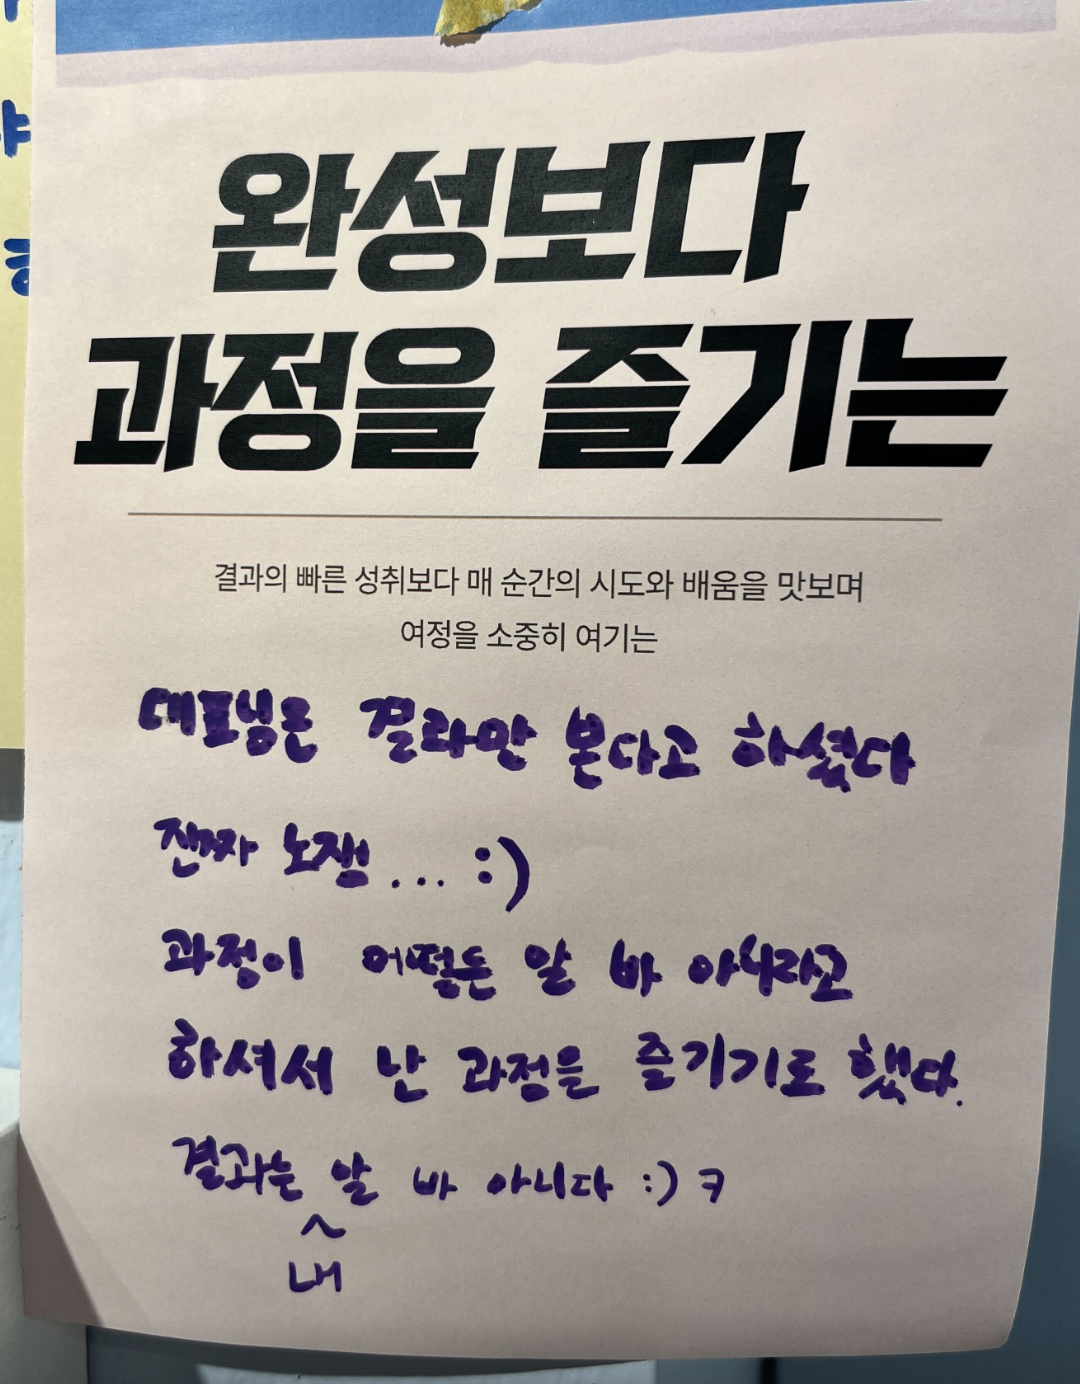 완성보다
과정을 즐기는
결과의 빠른 성취보다 매 순간의 시도와 배움을 맛보며
여정을 소중히 여기는
대표님은 결과만 본다고 하셨다
진짜 노잼... :)
과정이 어떻든 알 바 아니라고
하셔서 난 과정을 즐기기로 했다.
결과는 알 바 아니다 :) ㅋ
^
내